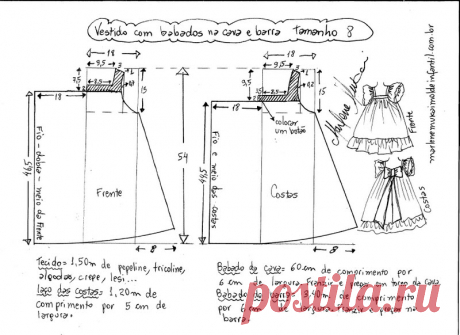 Vestido com babados na cava e barra tamanho 8
18
9,5
7,5
8,5
2
15
18
Fio - dobra - meio da frente
46,5
Frente
54
8
18
9,5
7,5
8,5
2
15
18
colocar
um botão
Fio e meio das costas
44,5
Costas
8
Marlene Mukai
marlenemukaimoldeinfantil.com.br
Frente
Costas
Tecido: 1,50m de popeline, tricoline,
algodão, crepe, lesi...
Laço das costas: 1,20m de
comprimento por 5 cm de
largura.
Babado da cava: 60cm de comprimento por
6 cm de largura. Franzir e pregar em torno da cava.
Babado da barra: 3,40m de comprimento
por 6 cm de largura. Franzir e pregar na
barra.
petalidad.ru